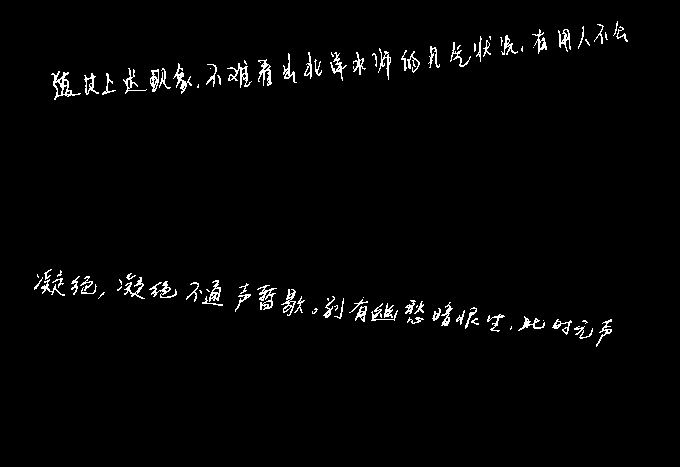 透过上述现象,不难看出北洋水师的月气状况,在用人不会
凝绝,凝绝不通声暂歇。别有幽愁暗恨生,此时无声